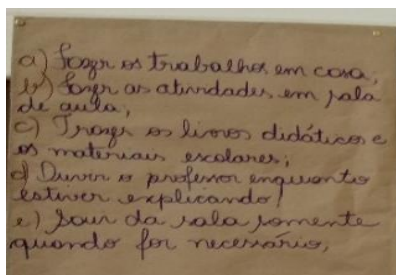 a) Fazer os trabalhos em casa;
b) Fazer as atividades em sala
de aula;
c) Trazer os livros didáticos e
os materiais escolares;
d) Ouvir o professor enquanto
estiver explicando!
e) Sair da sala somente
quando for necessário;